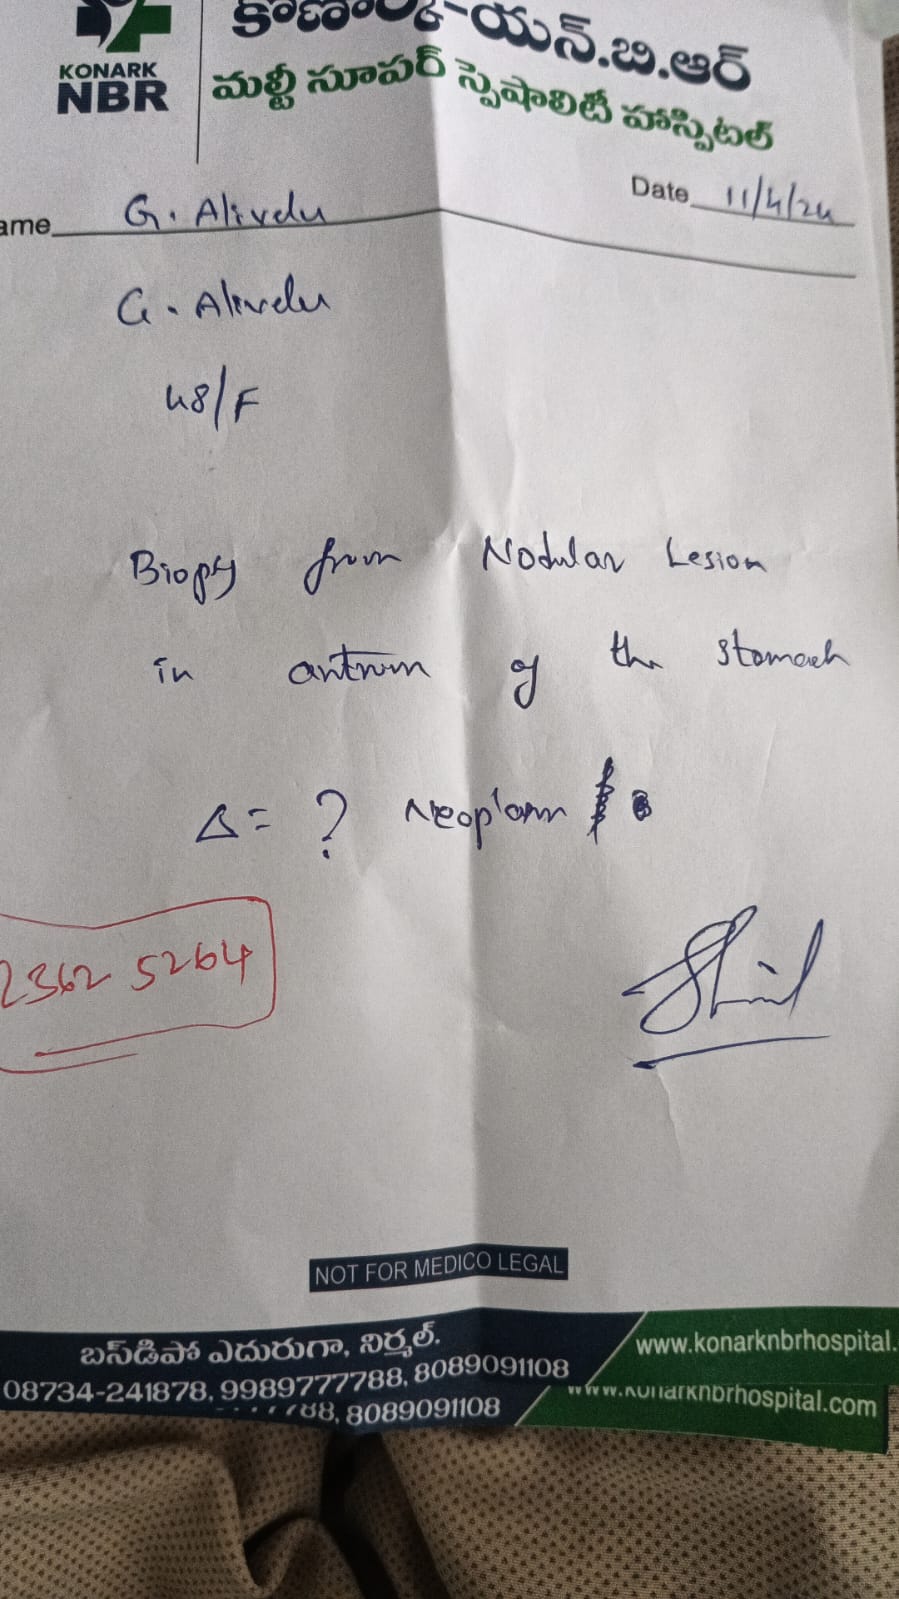 కోణార్క్-యన్.బి.ఆర్
KONARK
NBR
మల్టీ సూపర్ స్పెషాలిటీ హాస్పిటల్
Date 11/4/24
ame G. Alivelu
G. Alivelu
48/F
Biopsy from Nodular Lesion
in antrum of the stomach
Δ= ? Neoplasm
2362 5264
NOT FOR MEDICO LEGAL
బస్‌డిపో ఎదురుగా, నిర్మల్.
www.konarknbrhospital.
08734-241878, 9989777788, 8089091108
www.konarknbrhospital.com
88, 8089091108